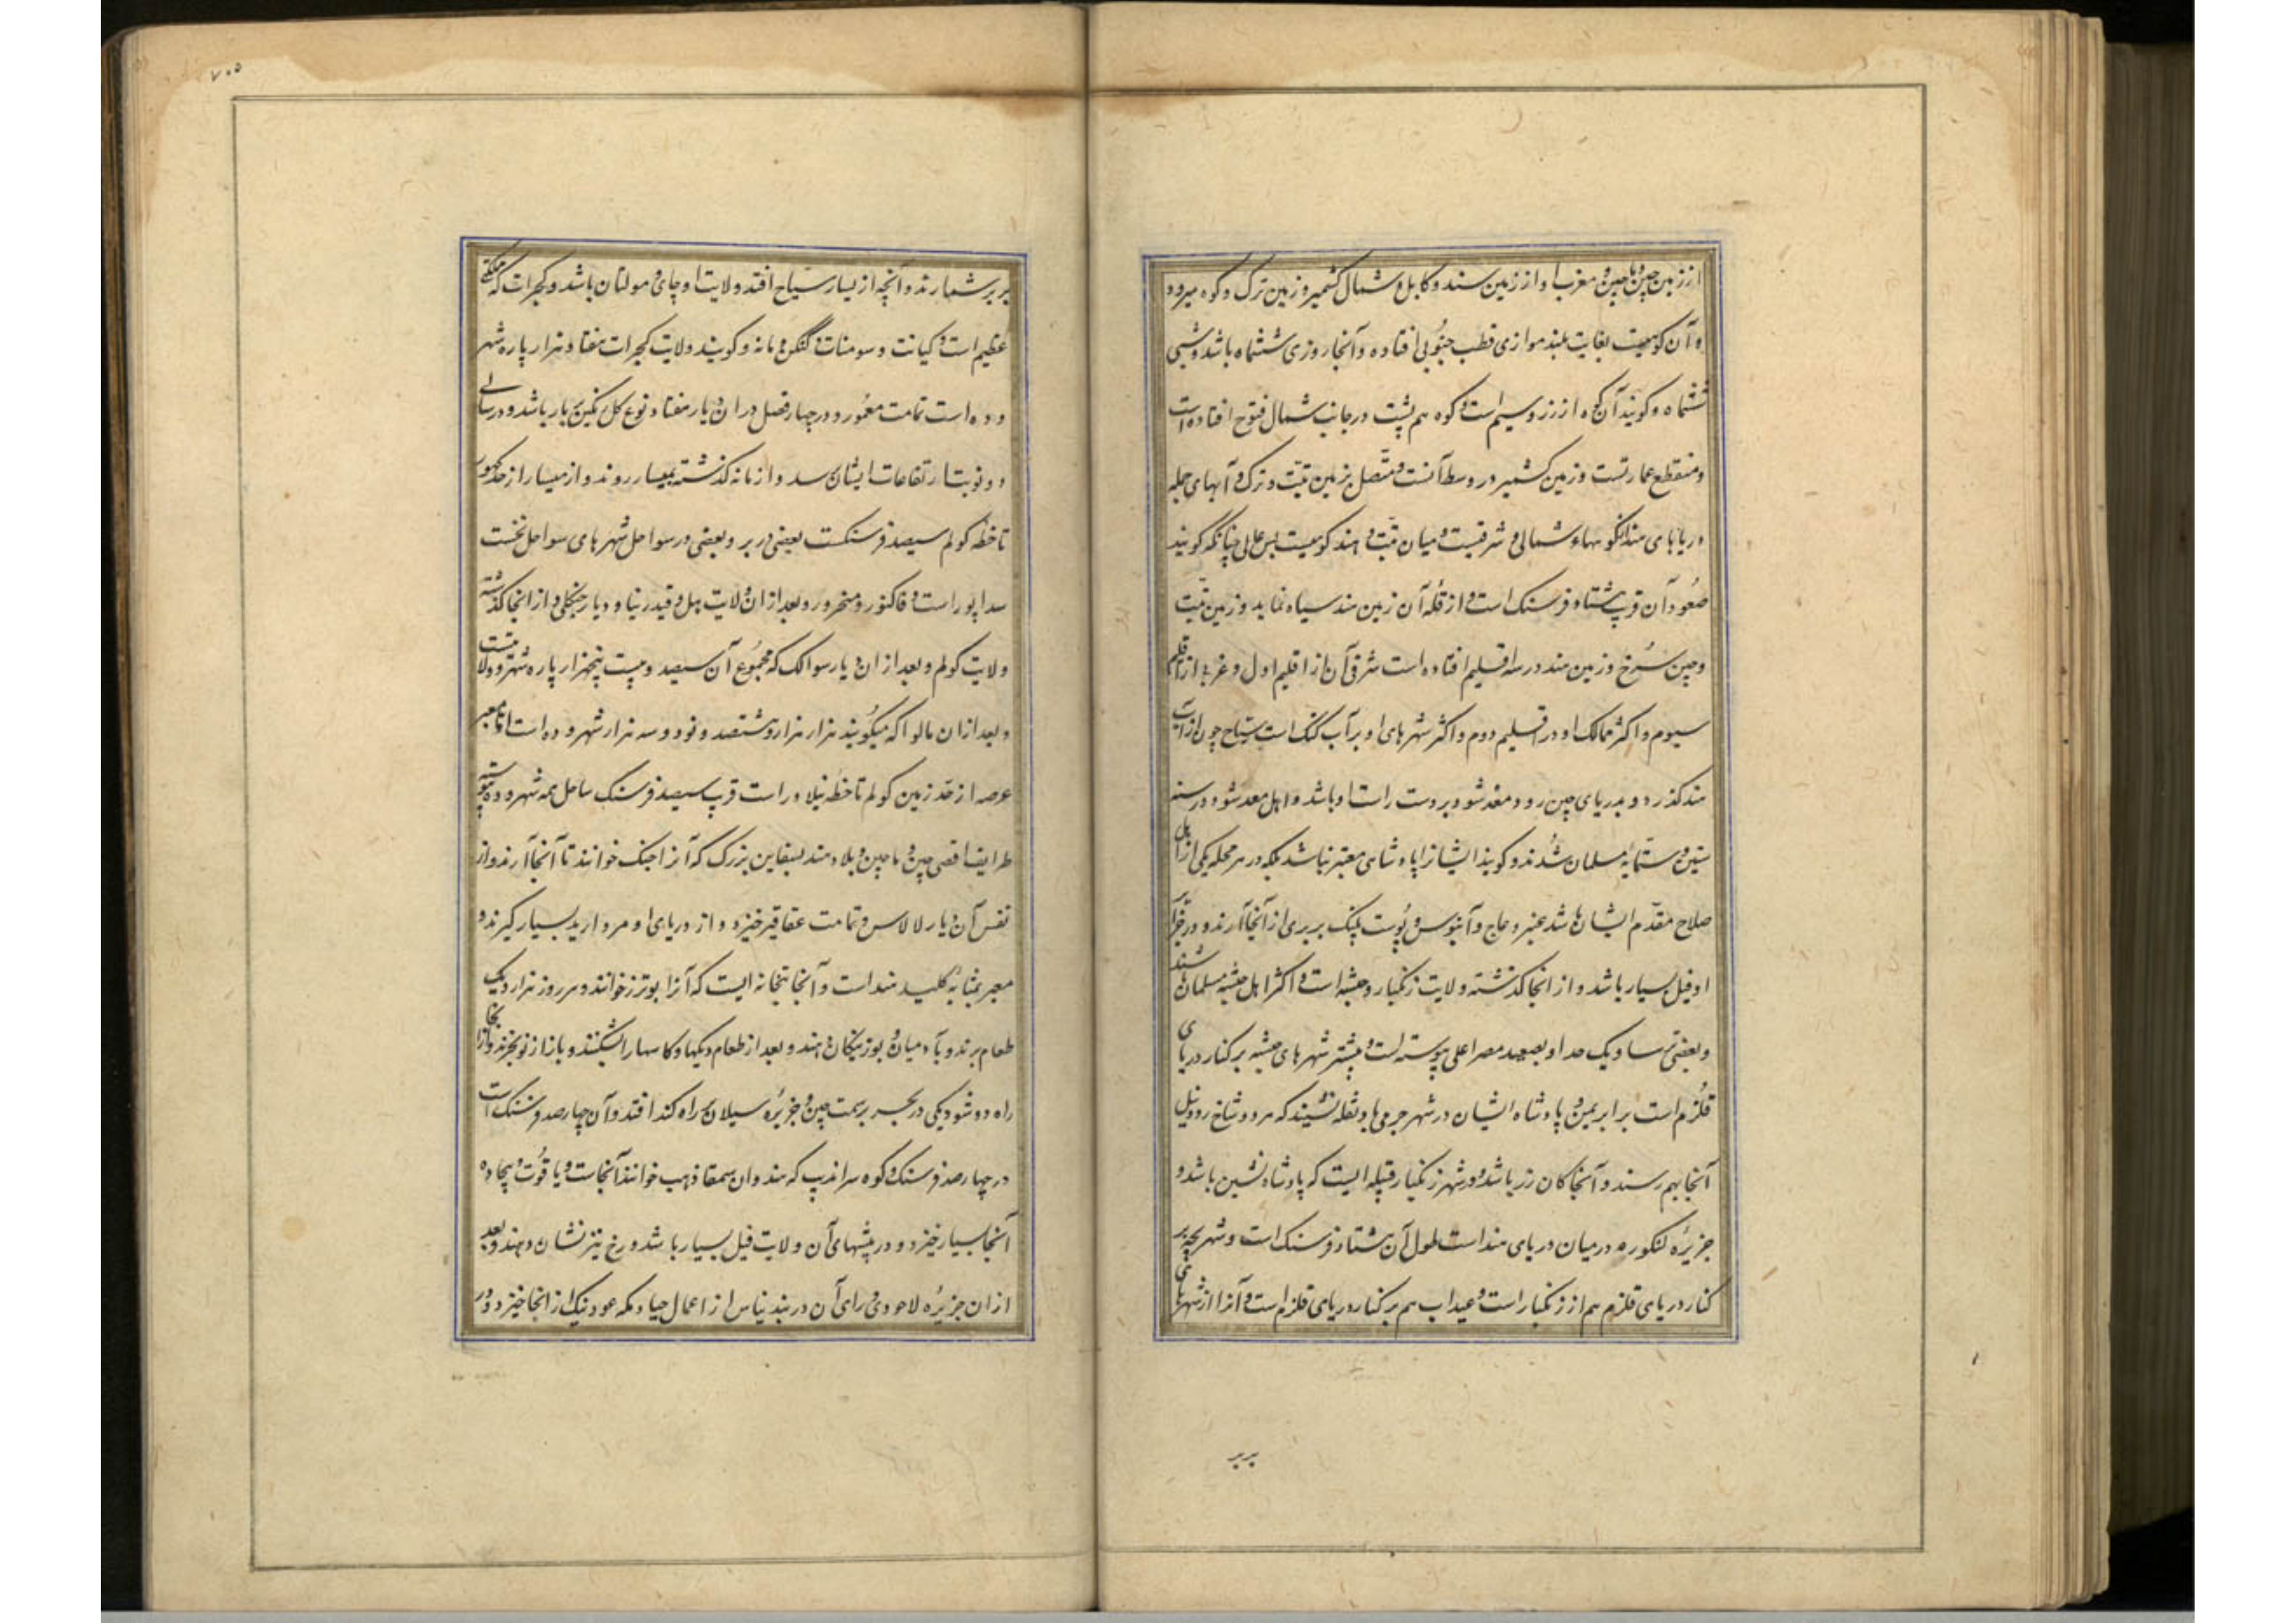 از زمین چین و ماچین و مغرب او از زمین سند و کابل و شمال کشمیر و زمین ترک و کوه میرود
و آن کوهیست بغایت بلند موازی قطب جنوبی افتاده و آنجا روزی ششماه باشد و شبی
ششماه و گویند آن کوه از زر و سیم است و کوه هم پشت در جانب شمال فتوح افتاده است
و منقطع عمارتست و زمین کشمیر در وسط آنست و متصل بزمین تبت و ترک و آبهای جمله
دریاهای هند از کوههاء شمالی و شرقیست و میان تبت و هند کوهیست بس عالی چنانکه گویند
صعود آن قرب هشتاد فرسنک است و از قله آن زمین هند سیاه نماید و زمین تبت
و چین سرخ و زمین هند در سه اقلیم افتاده است شرقی آن از اقلیم اول و غربی از اقلیم
سیوم و اکثر ممالک او در اقلیم دوم و اکثر شهرهای او بر آب گنگ است سیاح چون از آب
هند گذرد و بدریای چین رود مغد شود بر دست راست او باشد و اهل معد شود در سنه
ستین و ستمایه مسلمان شدند و گویند ایشانرا پادشاهی معتبر نباشد بلکه در هر محله یکی از اهل
صلاح مقدم ایشان باشد عنبر و عاج و آبنوس و پوست پلنک بربری از آنجا آرند و در جزایر
او فیل بسیار باشد و از انجا گذشته ولایت زنگبار و حبشه است و اکثر اهل حبشه مسلمان باشند
و بعضی ترسا و یک حد او بصعید مصر اعلی پیوسته است و بیشتر شهرهای حبشه بر کنار دریای
قلزم است برابر یمن و پادشاه ایشان در شهر جرمی با دنقله نشیند که هر دو شاخ رود نیل
آنجا بهم رسند و آنجا کان زر باشد و در شهر زنگبار قبیله ایست که پادشاه نشین باشد و
جزیره لنکوره در میان دریای هند است طول آن هشتاد فرسنک است و شهر بجه بر
کنار دریای قلزم هم از زنگبار است و عیداب هم بر کنار دریای قلزم است و آنرا از شهرهای
بربر
۷۰۵
بربر شمارند و آنچه از یسار سیاح افتد ولایت اوچای و مولتان باشد و گجرات که مملکتی
عظیم است و کیانت و سومنات و گنکن و تانه و گویند ولایت گجرات هفتاد هزار پاره شهر
و ده است تمامت معمور و در چهار فصل در ان دیار هفتاد نوع گل رنگین ببار باشد و در سالی
دو نوبت ارتفاعات ایشان سد و از تانه گذشته بمیسار روند و از میسار از حد کهور
تا خطه کولم سیصد فرسنکست بعضی در بر و بعضی در سواحل شهرهای سواحل نخست
سداپور است و فاکنور و منجرور و بعد از ان ولایت هیلی و قیدرنیا و دیار جنکلی و از انجا گذشته
ولایت کولم و بعد از ان دیار سوالک که مجموع آن سیصد و بیست پنجهزار پاره شهر و ده لا هست
و بعد از ان مالوا که میگویند هزار هزار و هشتصد و نود و سه هزار شهر و ده است اما معبر
عرصه از حد زمین کولم تا خطه نیلاور است قرب سیصد فرسنک ساحل همه شهر و ده پیوسته
طرایف اقصی چین و ماچین و بلاد هند بسفاین بزرگ که آنرا جنک خوانند تا آنجا آرند و از
نفس آن دیار لالاس و تمامت عقاقیر خیزد و از دریای او مروارید بسیار گیرند و
معبر بمثابه کلید هند است و آنجا بتخانه ایست که آنرا بوترز خوانند و هر روز هزار دیک
طعام برند و بآدمیان و بوزینگان دهند و بعد از طعام دیکها و کاسها را بشکنند و باز از نو بخرند و از انجا
راه دو شود یکی در بحر بر سمت چین و جزیره سیلان بر راه کند افتد و آن چهارصد فرسنک است
در چهارصد فرسنک و کوه سراندیب که هندوان سمقا ذهب خوانند آنجاست و یاقوت و بیجاده
آنجا بسیار خیزد و در بیشهای آن ولایت فیل بسیار باشد و رخ نیز نشان دهند و بعد
از ان جزیره لاهوری و رای آن در بند نیاس از اعمال جیاد مکه عود نیک از انجا خیزد و در